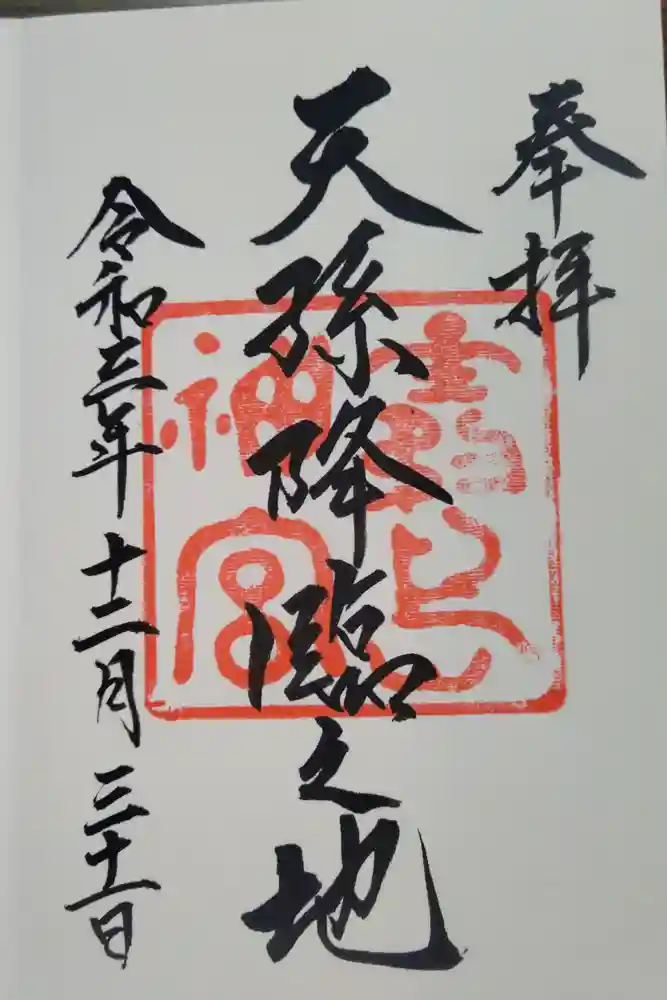 奉拝
天孫降臨之地
令和三年十二月三十一日
神宮